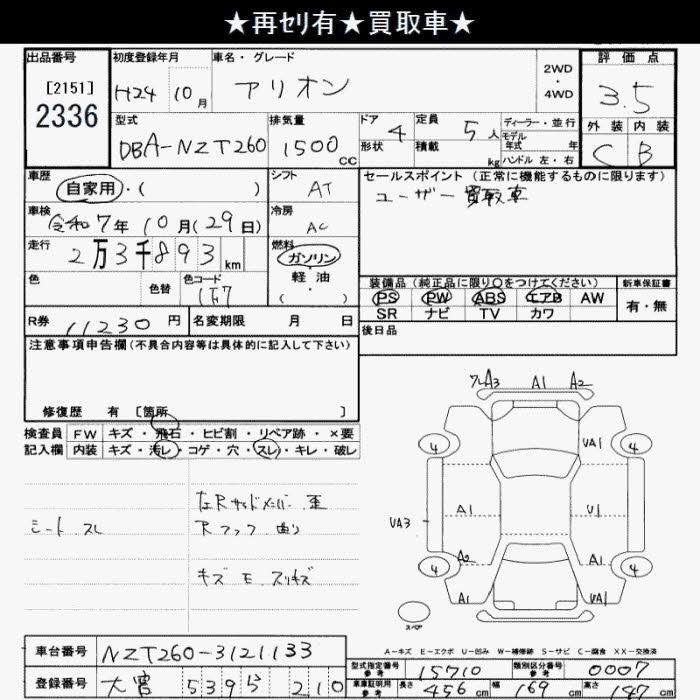 ★再ｾﾘ有★買取車★
出品番号 初度登録年月 車名・グレード 評価点
[2151] 2WD・4WD
2336 H24 10月 アリオン 3.5
型式 排気量 ドア 定員 ディーラー・並行 外装 内装
DBA-NZT260 1500cc 4 5人 モデル年式 年 C B
形状 積載 kg ハンドル 左・右
車歴 シフト セールスポイント(正常に機能するものに限ります)
自家用・( ) AT ユーザー買取車
車検 冷房
令和7年10月(29日) AC
走行 燃料
2万3千893km ガソリン・軽油・( )
色 色替 色コード 装備品(純正品に限り○をつけてください) 新車保証書
1F7 PS PW ABS エアB AW 有・無
SR ナビ TV カワ
R券 11230円 名変期限 月 日 後日品
注意事項申告欄(不具合内容等は具体的に記入して下さい)
修復歴 有 [箇所 ]
検査員 FW キズ・飛石・ヒビ割・リペア跡・×要
記入欄 内装 キズ・汚レ・コゲ・穴・スレ・キレ・破レ
シート スレ
左Rサイドメンバー 歪
Rフック 曲り
キズ E スリキズ
A3 A1 A2
4 VA1 4
A1 U1
VA3
A2 A1
4 4
A1 VA1
スペア
A-キズ E-エクボ U-凹み W-補修跡 S-サビ C-腐食 XX-交換済
車台番号 NZT260-3121133
型式指定番号 参考 15710 類別区分番号 参考 0007
登録番号 大宮 539 ら 210
車庫証明用 参考 長さ 456cm 幅 169cm 高さ 47cm